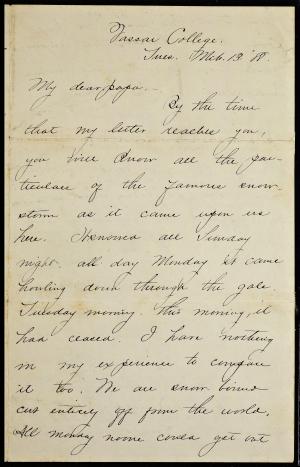 Vassar College.
Tues. Mch. 13 '88.
My dear papa.-
By the time
that my letter reaches you,
you will know all the par-
ticulars of the famous snow-
storm as it came upon us
here. It snowed all Sunday
night. all day Monday it came
howling down through the gale.
Tuesday morning. this morning, it
had ceased. I have nothing
in my experience to compare
it too. We are snow bound
cut entirely off from the world.
All monday noone could get out